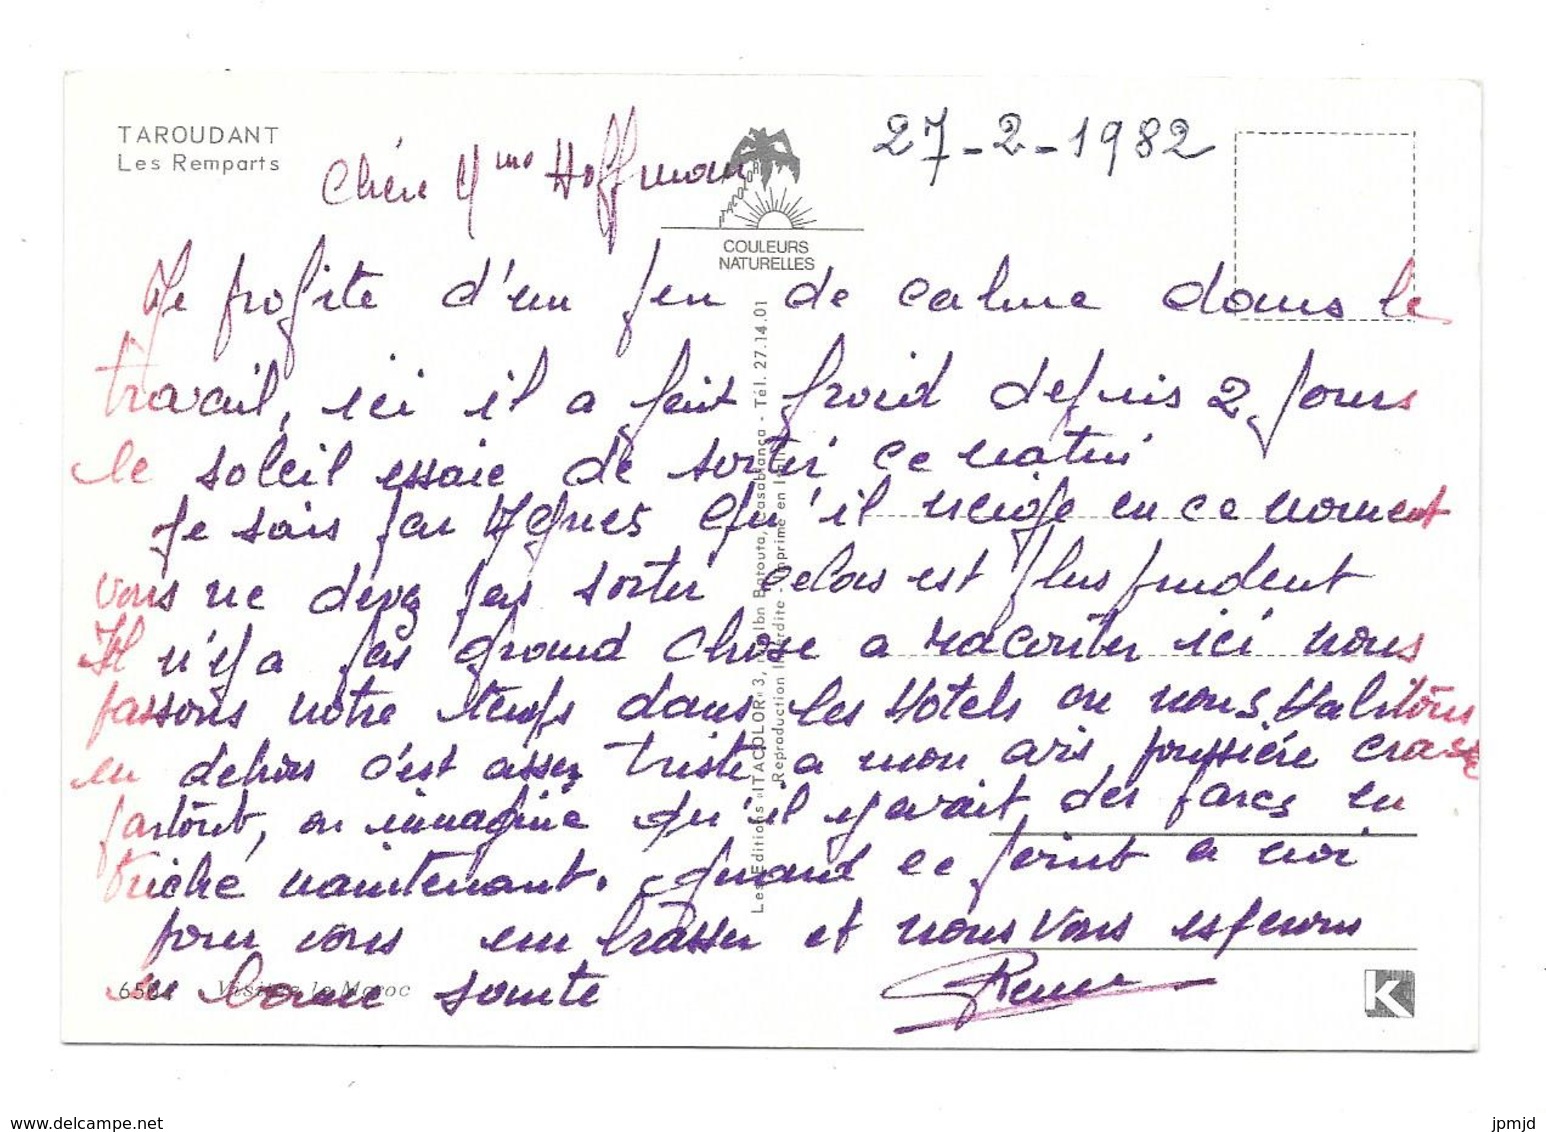 TAROUDANT
Les Remparts
27-2-1982
Chère Mme Hoffman
COULEURS
NATURELLES
Je profite d'un peu de calme dans le
travail, ici il a fait froid depuis 2 jours
le soleil essaie de sortir ce matin
je sais par Agnes qu'il neige en ce moment
vous ne devez pas sortir celas est plus prudent
Il n'y a pas grand chose a raconter ici nous
passons notre temps dans les Hotels ou nous habitons
en dehors c'est assez triste a mon avis, poussière crasse
partout, on immagine qu'il y avait des parcs en
friche maintenant. quand ce joint a moi
pour vous embrasser et nous vous esperons
en bonne sante
Les Editions «ITACOLOR» 3, Ibn Batouta, Casablanca - Tél. 27.14.01
Reproduction Interdite - Imprimé en
Visitez le Maroc
K
www.delcampe.net
jpmjd